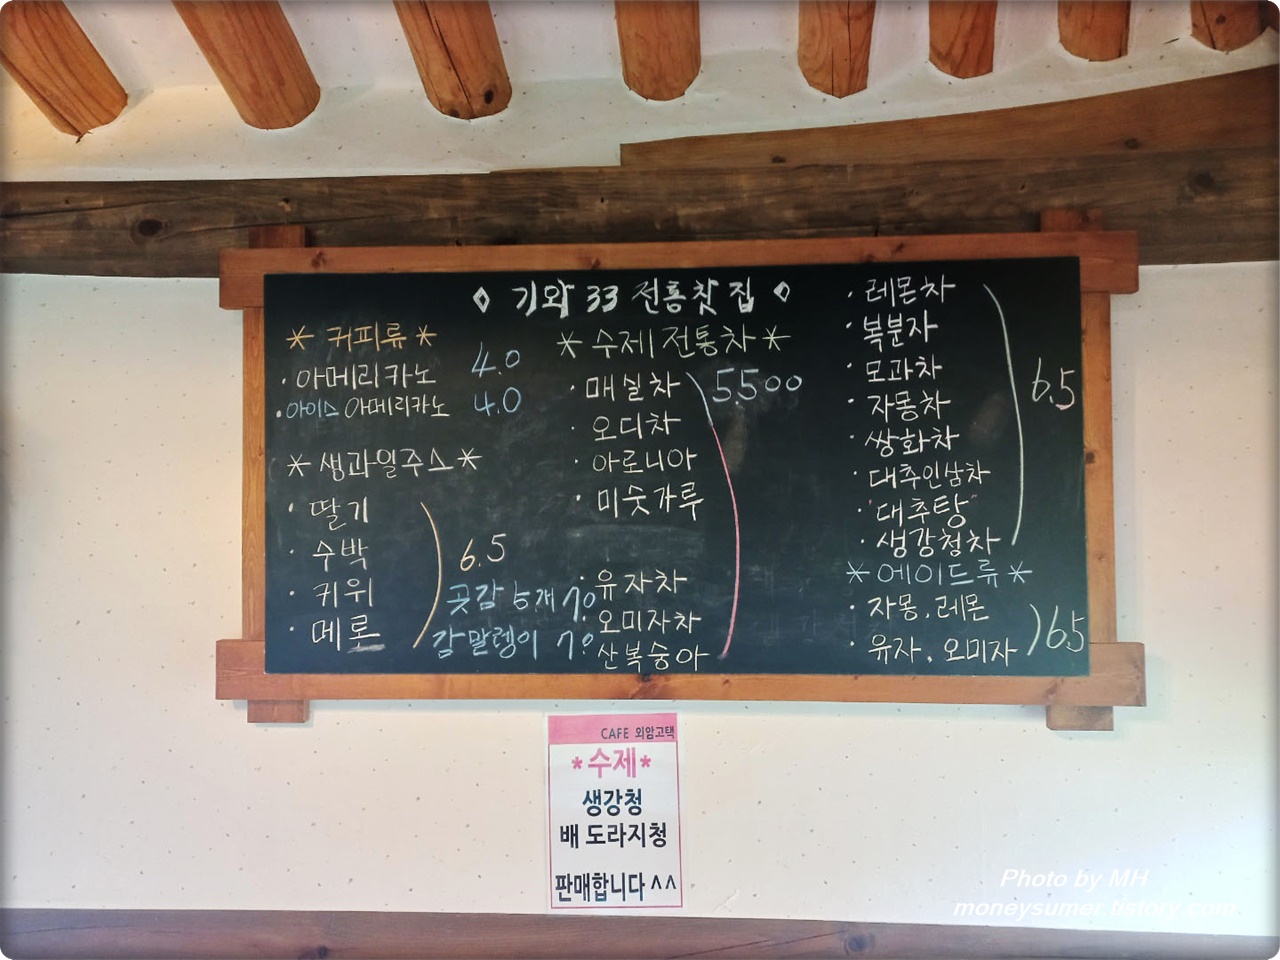 ◇ 기와 33 전통찻집 ◇
* 커피류 *
· 아메리카노 4.0
· 아이스 아메리카노 4.0
* 생과일주스 *
· 딸기
· 수박
· 키위
· 메론
6.5
곶감 5개 7.0
감말랭이 7.0
* 수제 전통차 *
· 매실차 5.500
· 오디차
· 아로니아
· 미숫가루
· 유자차
· 오미자차
· 산복숭아
· 레몬차
· 복분자
· 모과차
· 자몽차
· 쌍화차
· 대추인삼차
· "대추탕"
· 생강청차
6.5
* 에이드류 *
· 자몽, 레몬
· 유자, 오미자
6.5
CAFE 외암고택
*수제*
생강청
배 도라지청
판매합니다^^
Photo by MH
moneysumer.tistory.com